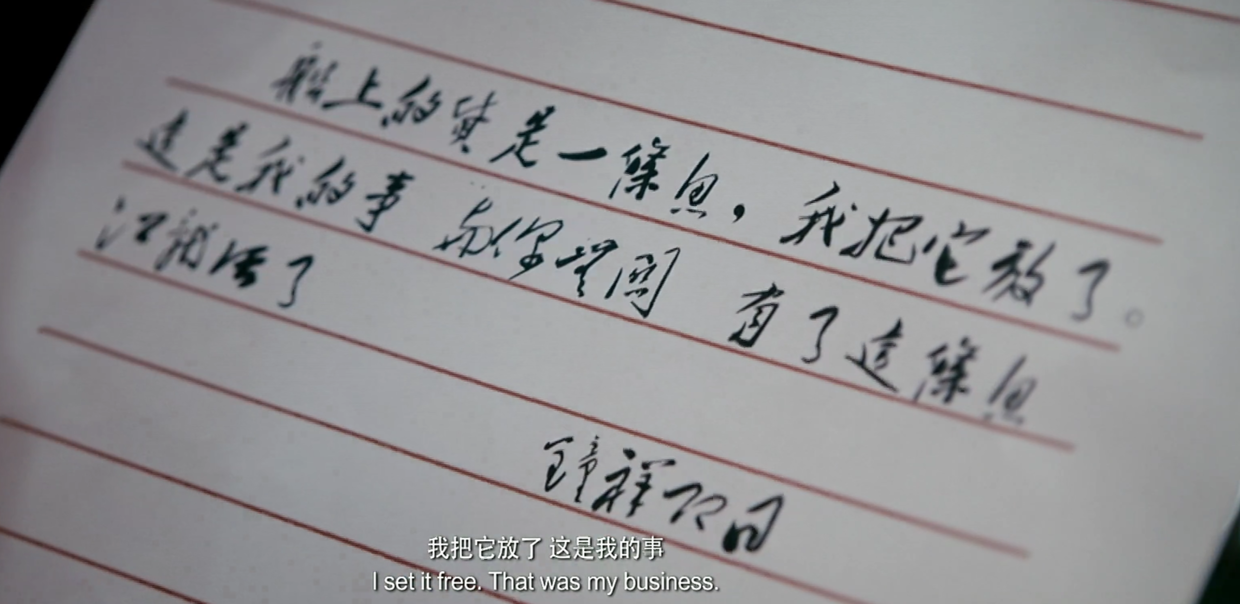 船上的货是一條鱼，我把它放了。
這是我的事 与你無関 有了這條鱼
江就活了
鐘祥即日
我把它放了 这是我的事
I set it free. That was my business.